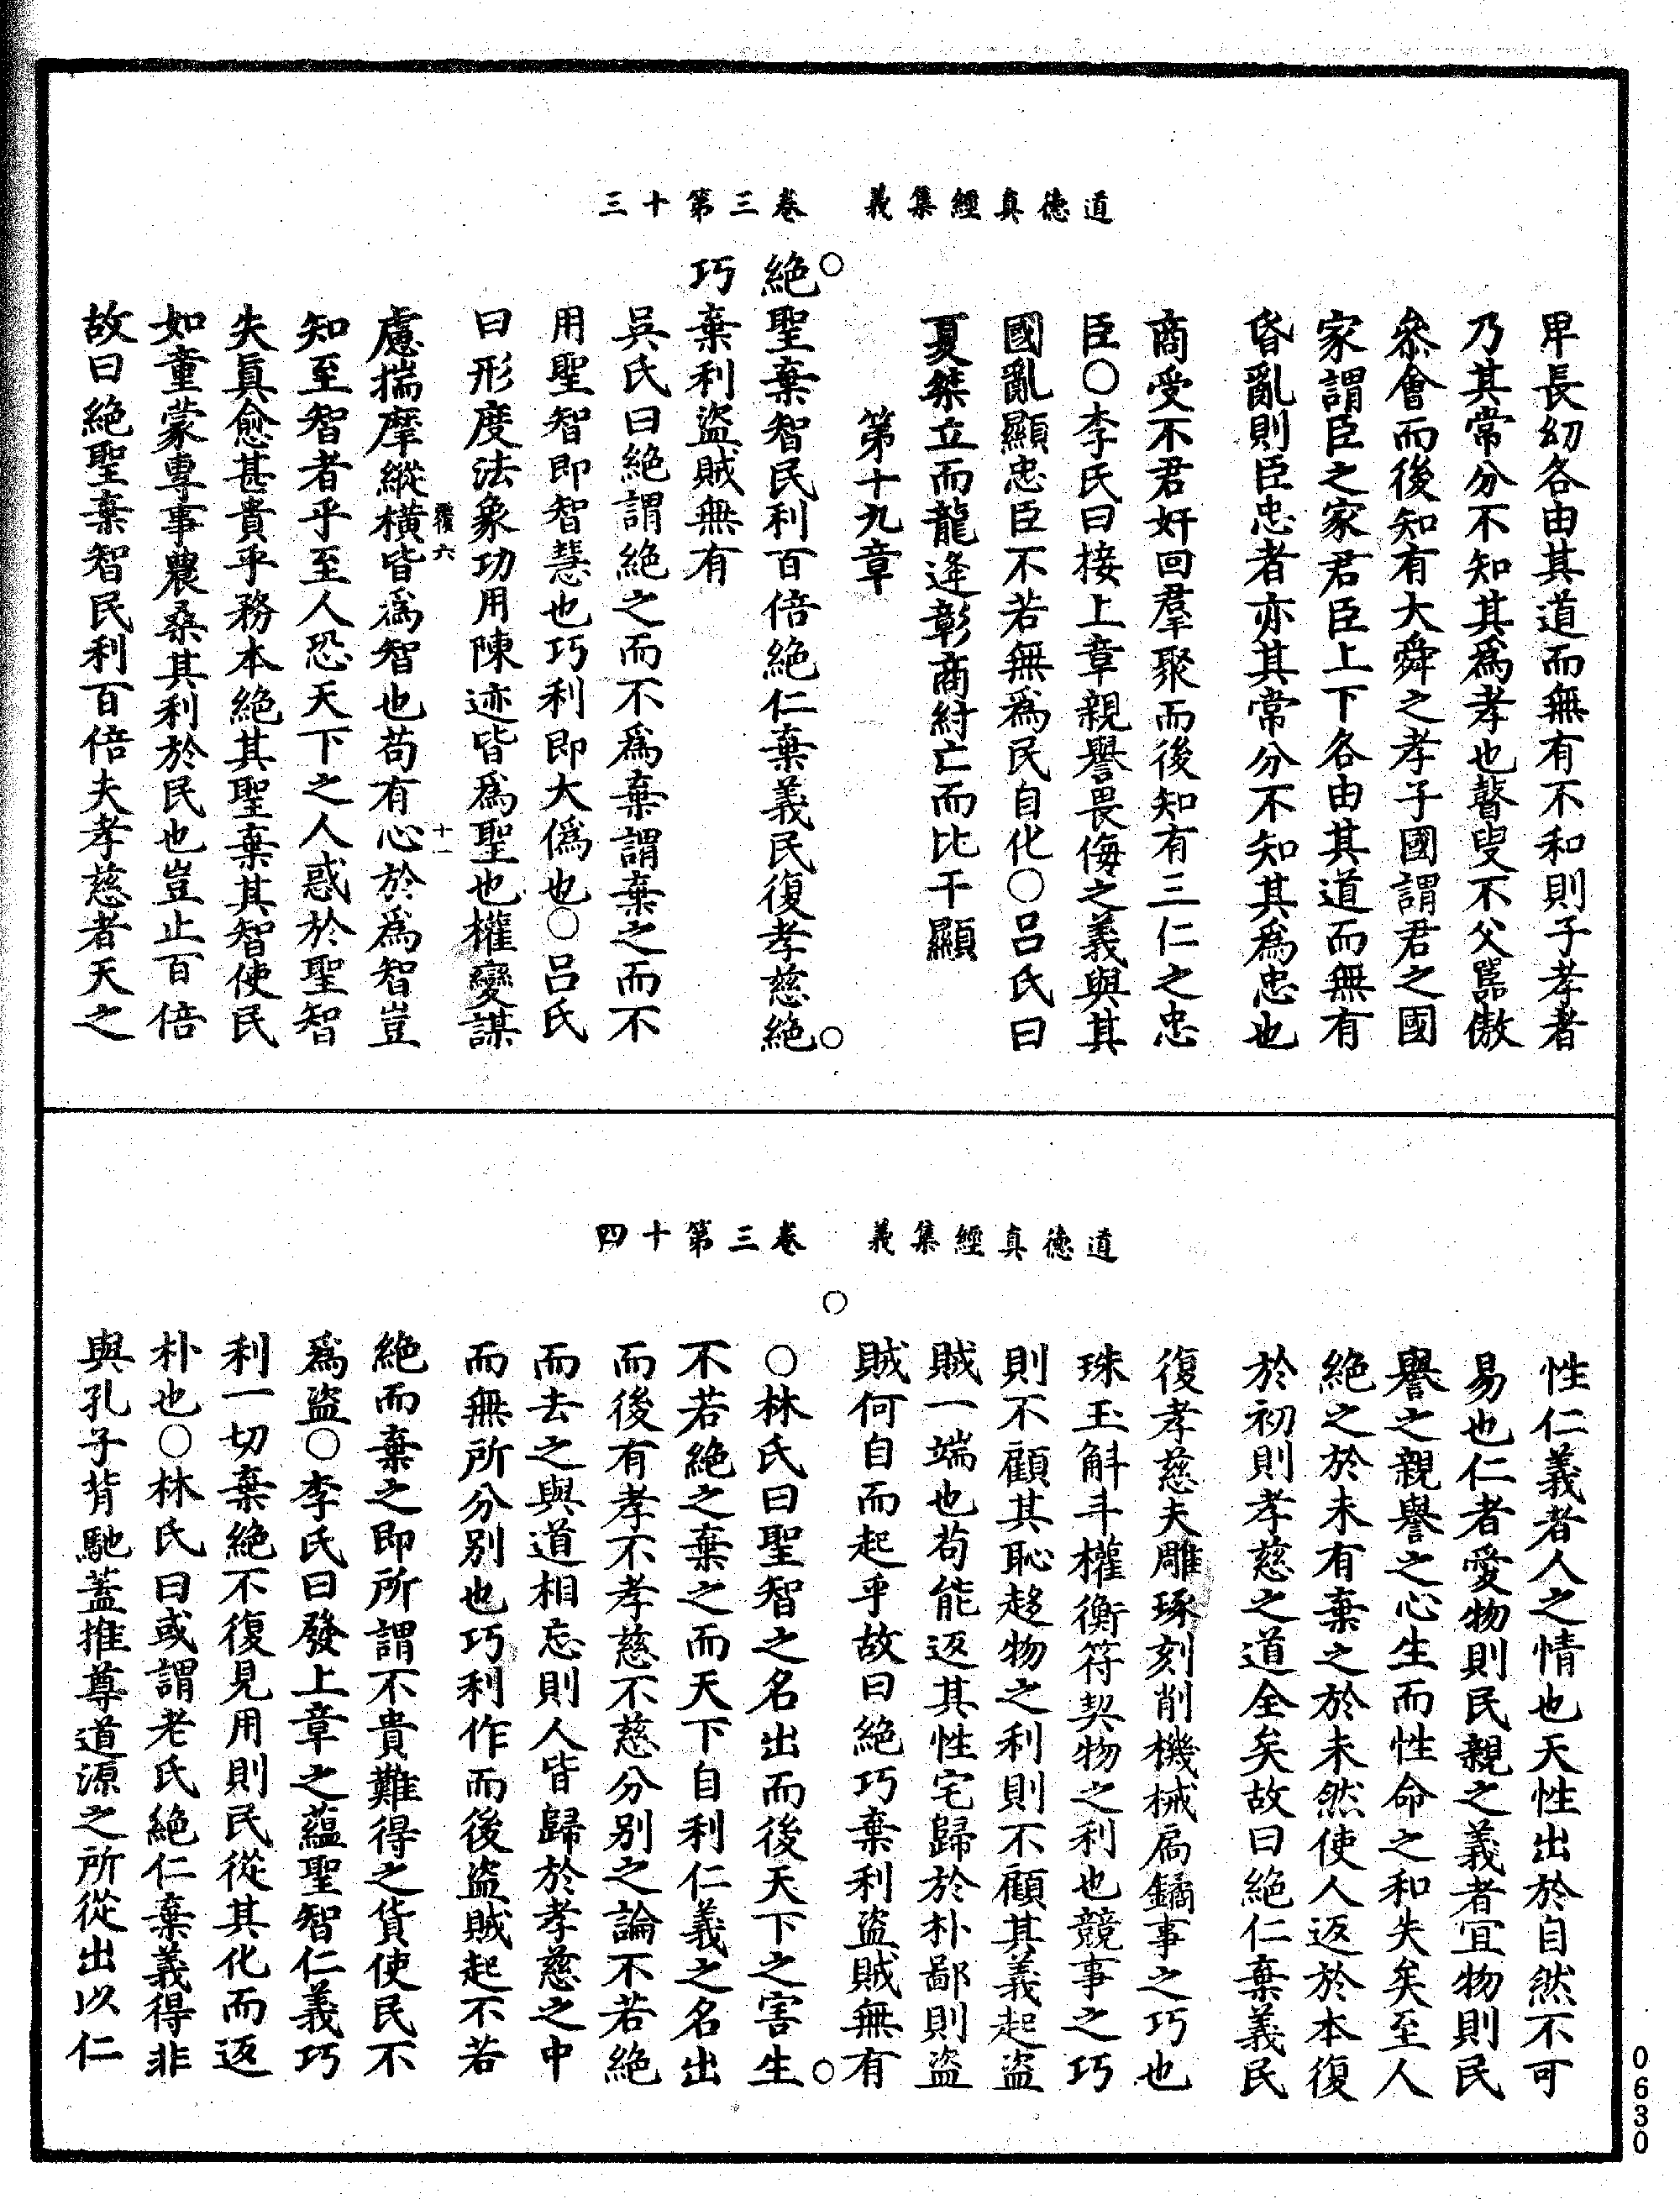 道德真經集義　卷三第十三
卑長幼各由其道而無有不和則子孝者
乃其常分不知其爲孝也瞽叟不父嚚傲
叅會而後知有大舜之孝子國謂君之國
家謂臣之家君臣上下各由其道而無有
昏亂則臣忠者亦其常分不知其爲忠也
商受不君奸回羣聚而後知有三仁之忠
臣○李氏曰接上章親譽畏侮之義與其
國亂顯忠臣不若無爲民自化○呂氏曰
夏桀立而龍逄彰商紂亡而比干顯
第十九章
絕聖棄智民利百倍絕仁棄義民復孝慈絕
巧棄利盜賊無有
吳氏曰絕謂絕之而不爲棄謂棄之而不
用聖智即智慧也巧利即大僞也○呂氏
曰形度法象功用陳迹皆爲聖也權變謀
覆六　十一
慮揣摩縱橫皆爲智也苟有心於爲智豈
知至智者乎至人恐天下之人惑於聖智
失眞愈甚貴乎務本絕其聖棄其智使民
如童蒙專事農桑其利於民也豈止百倍
故曰絕聖棄智民利百倍夫孝慈者天之
道德真經集義　卷三第十四
性仁義者人之情也天性出於自然不可
易也仁者愛物則民親之義者宜物則民
譽之親譽之心生而性命之和失矣至人
絕之於未有棄之於未然使人返於本復
於初則孝慈之道全矣故曰絕仁棄義民
復孝慈夫雕琢刻削機械扄鐍事之巧也
珠玉斛斗權衡符契物之利也競事之巧
則不顧其恥趍物之利則不顧其義起盜
賊一端也苟能返其性宅歸於朴鄙則盜
賊何自而起乎故曰絕巧棄利盜賊無有
○林氏曰聖智之名出而後天下之害生
不若絕之棄之而天下自利仁義之名出
而後有孝不孝慈不慈分別之論不若絕
而去之與道相忘則人皆歸於孝慈之中
而無所分別也巧利作而後盜賊起不若
絕而棄之即所謂不貴難得之貨使民不
爲盜○李氏曰發上章之蘊聖智仁義巧
利一切棄絕不復見用則民從其化而返
朴也○林氏曰或謂老氏絕仁棄義得非
與孔子背馳蓋推尊道源之所從出以仁
0630